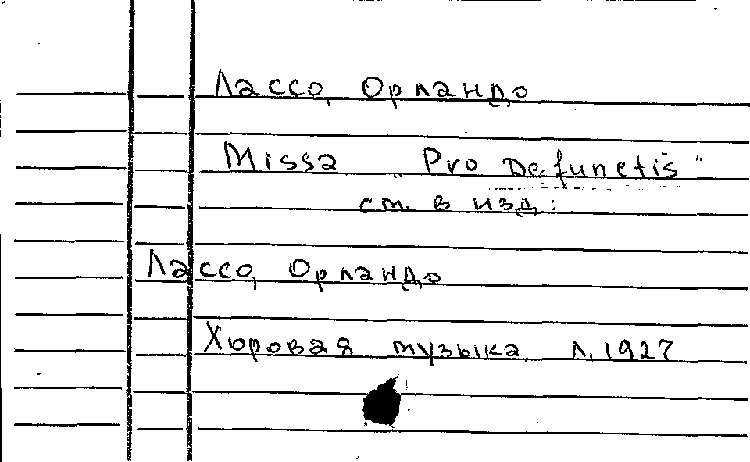 Лассо, Орландо
Missa „Pro Defunctis"
см. в изд:
Лассо, Орландо
Хоровая музыка Л. 1927